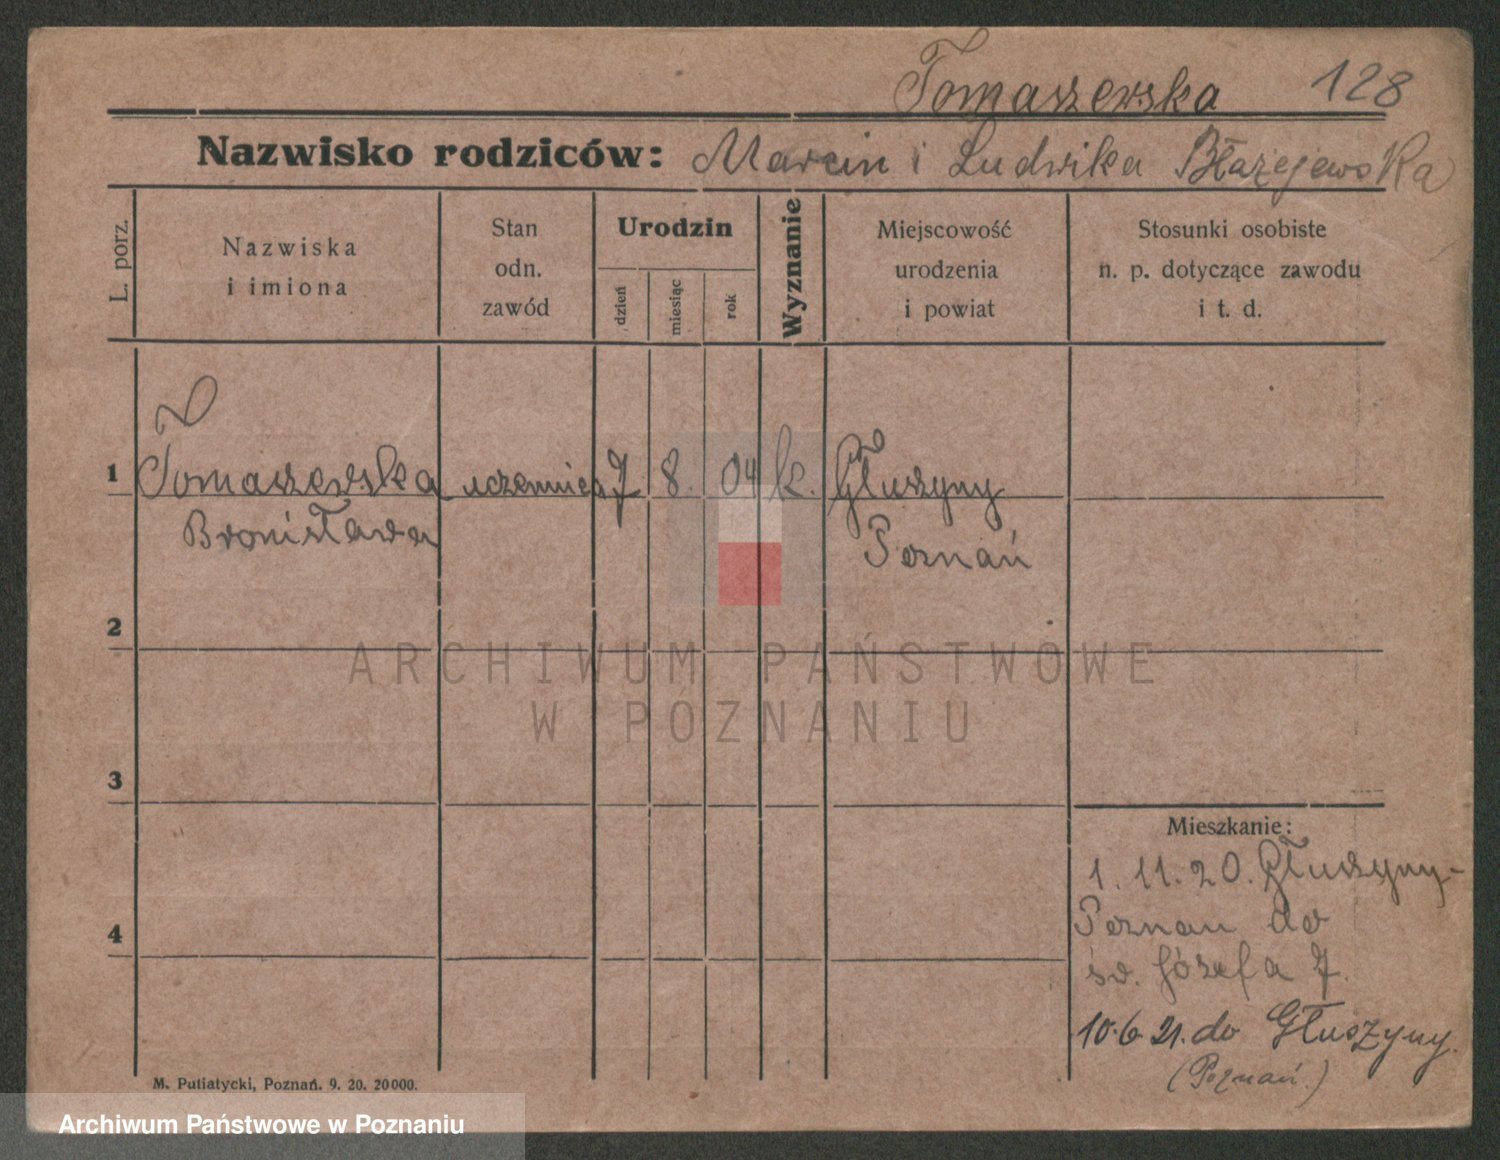 Tomaszewska 128
Nazwisko rodziców: Marcin i Ludwika Błażejewska
L. porz.
Nazwiska
i imiona
Stan
odn.
zawód
Urodzin
dzień
miesiąc
rok
Wyznanie
Miejscowość
urodzenia
i powiat
Stosunki osobiste
n. p. dotyczące zawodu
i t. d.
1 Tomaszewska uczennica 7 8. 04 k. Głuszyny
Bronisława Poznań
2
ARCHIWUM PAŃSTWOWE
W POZNANIU
3
Mieszkanie:
1. 11. 20. Głuszyny-
4 Poznań do
św. Józefa 7.
10.6 21. do Głuszyny.
(Poznań.)
M. Putiatycki, Poznań. 9. 20. 20000.
Archiwum Państwowe w Poznaniu